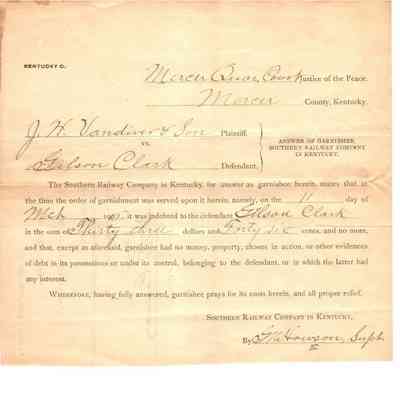 KENTUCKY C.
Mercer Quar. Court Justice of the Peace.
Mercer County, Kentucky.
J. W. Vandiver & Son Plaintiff,
vs.
Gilson Clark Defendant.
ANSWER OF GARNISHEE,
SOUTHERN RAILWAY COMPANY
IN KENTUCKY.
The Southern Railway Company in Kentucky, for answer as garnishee herein, states that at
the time the order of garnishment was served upon it herein, namely, on the 11 day of
Mch it was indebted to the defendant Gilson Clark
in the sum of Thirty three dollars and Forty six cents, and no more,
and that, except as aforesaid, garnishee had no money, property, choses in action, or other evidences
of debt in its possession or under its control, belonging to the defendant, or in which the latter had
any interest.
WHEREFORE, having fully answered, garnishee prays for its costs herein, and all proper relief.
SOUTHERN RAILWAY COMPANY IN KENTUCKY,
By Supt.